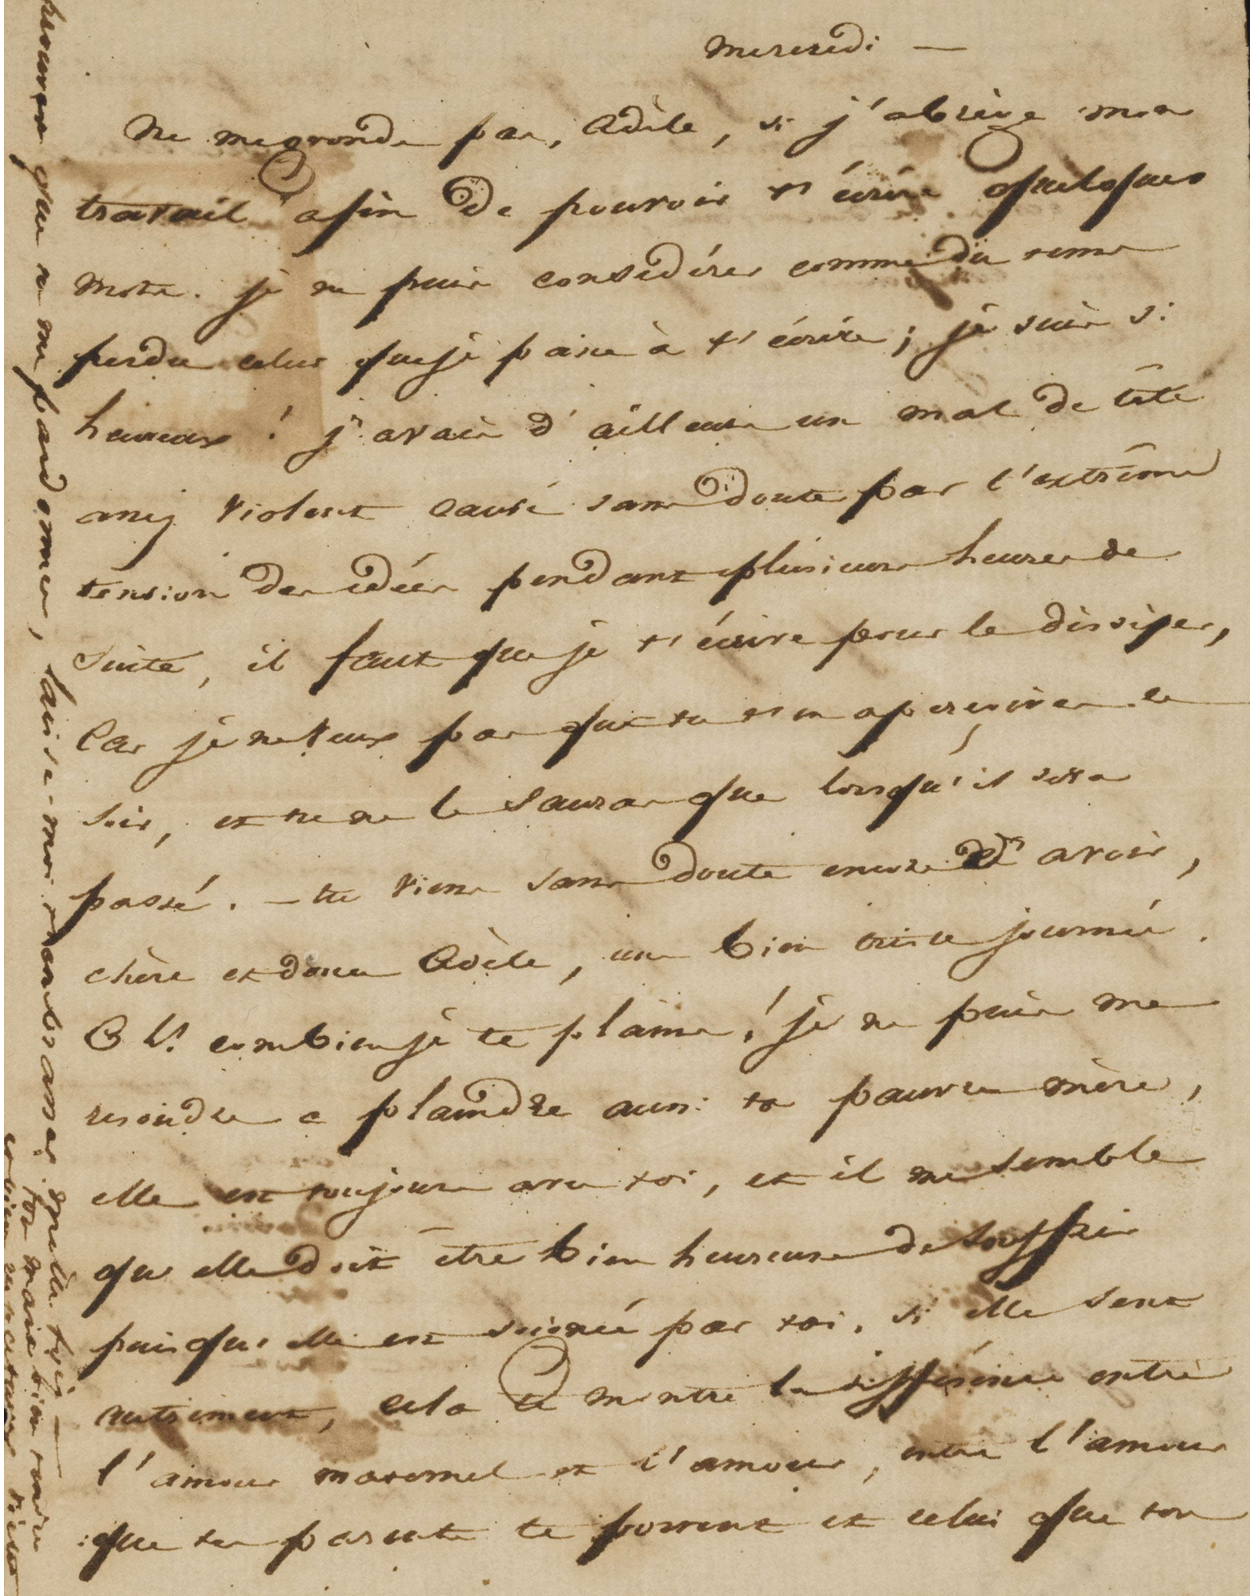 Mercredi —
Ne me gronde pas, Adèle, si j'abrège mon
travail afin de pouvoir t'écrire quelques
mots. je ne puis considérer comme du tems
perdu celui que je passe à t'écrire ; je suis si
heureux ! j'avais d'ailleurs un mal de tête
assez violent causé sans doute par l'extrême
tension des idées pendant plusieurs heures de
suite, il faut que je t'écrive pour le dissiper,
Car je ne veux pas que tu t'en aperçoives ce
soir, et tu ne le sauras que lorsqu'il sera
passé. — tu viens sans doute encore d'avoir,
chère et douce Adèle, une bien triste journée.
Oh ! combien je te plains ! je ne puis me
résoudre à plaindre aussi ta pauvre mère,
elle est toujours avec toi, et il me semble
qu'elle doit être bien heureuse de souffrir
puisqu'elle est soignée par toi. si elle sent
autrement, cela te montre la différence entre
l'amour maternel et l'amour, entre l'amour
que tes parents te portent et celui que ton
prouver que tu me pardonnes, laisse-moi t'embrasser
ton mari bien